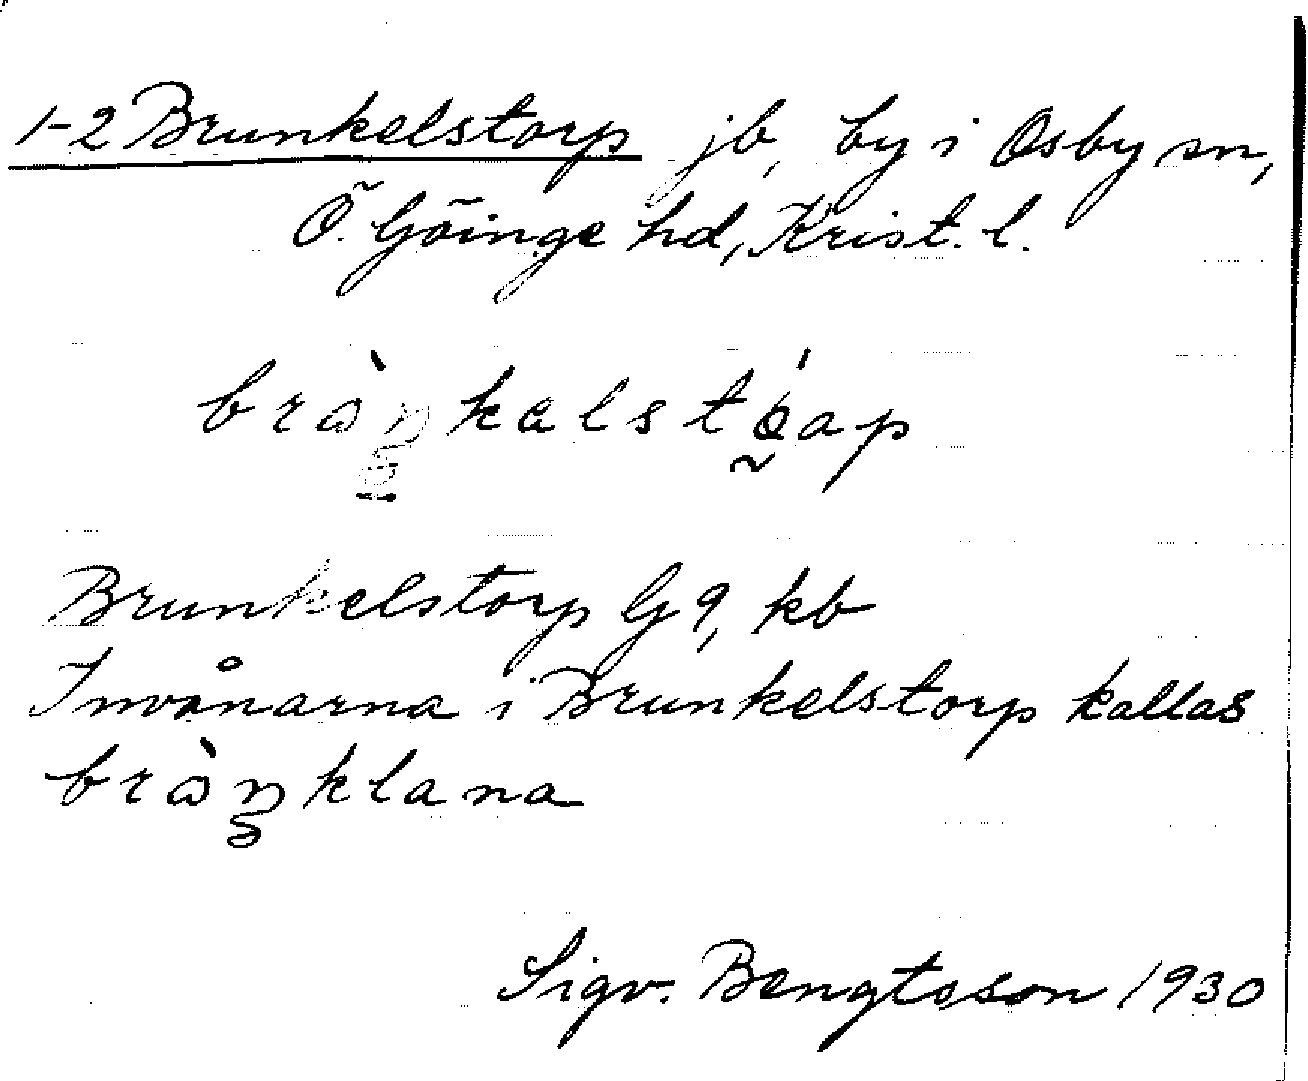 1-2 Brunkelstorp jb, by i Osby sn,
Ö. Göinge hd, Krist. l.
Brunkelstorp G 9, kb
Invånarna i Brunkelstorp kallas
Sigv. Bengtsson 1930